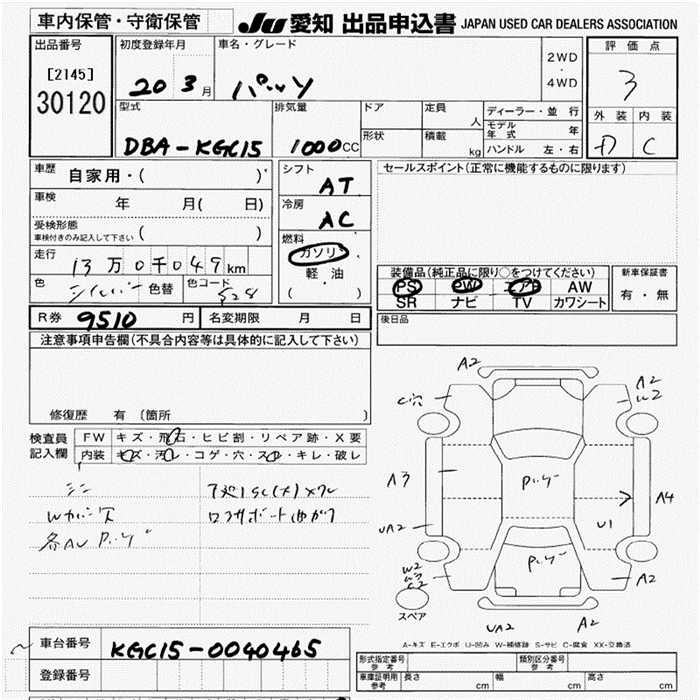 車内保管・守衛保管
JU 愛知 出品申込書 JAPAN USED CAR DEALERS ASSOCIATION
出品番号
[2145]
30120
初度登録年月
20 3 月
車名・グレード
パッソ
2WD
・
4WD
評価点
3
外装 内装
D C
型式
DBA-KGC15
排気量
1000 CC
ドア
形状
定員
人
積載
kg
ディーラー・並行
モデル年式 年
ハンドル 左・右
車歴
自家用・( )
車検 年 月( 日)
受検形態
車検付きのみ記入して下さい ( )
走行
13万0千049km
色
シルバー 色替
色コード
S28
シフト
AT
冷房
AC
燃料
ガソリン
軽・油
( )
セールスポイント(正常に機能するものに限ります)
装備品(純正品に限り○をつけてください)
PS PW エアB AW
SR ナビ TV カワシート
新車保証書
有・無
後日品
R券 9510 円
名変期限 月 日
注意事項申告欄(不具合内容等は具体的に記入して下さい)
修復歴 有 (箇所 )
検査員
記入欄
FW キズ・飛石・ヒビ割・リペア跡・X要
内装 キズ・汚レ・コゲ・穴・スレ・キレ・破レ
Wカバー欠
A2
A2
C穴
A3
A4
UA2
U1
W2
A2
UA2
A2
スペア
A-キズ E-エクボ U-凹み W-補修跡 S-サビ C-腐食 XX-交換済
車台番号
KGC15-0040465
登録番号
形式指定番号
参考
類別区分番号
参考
車庫証明用
参考
長さ cm
幅 cm
高さ cm